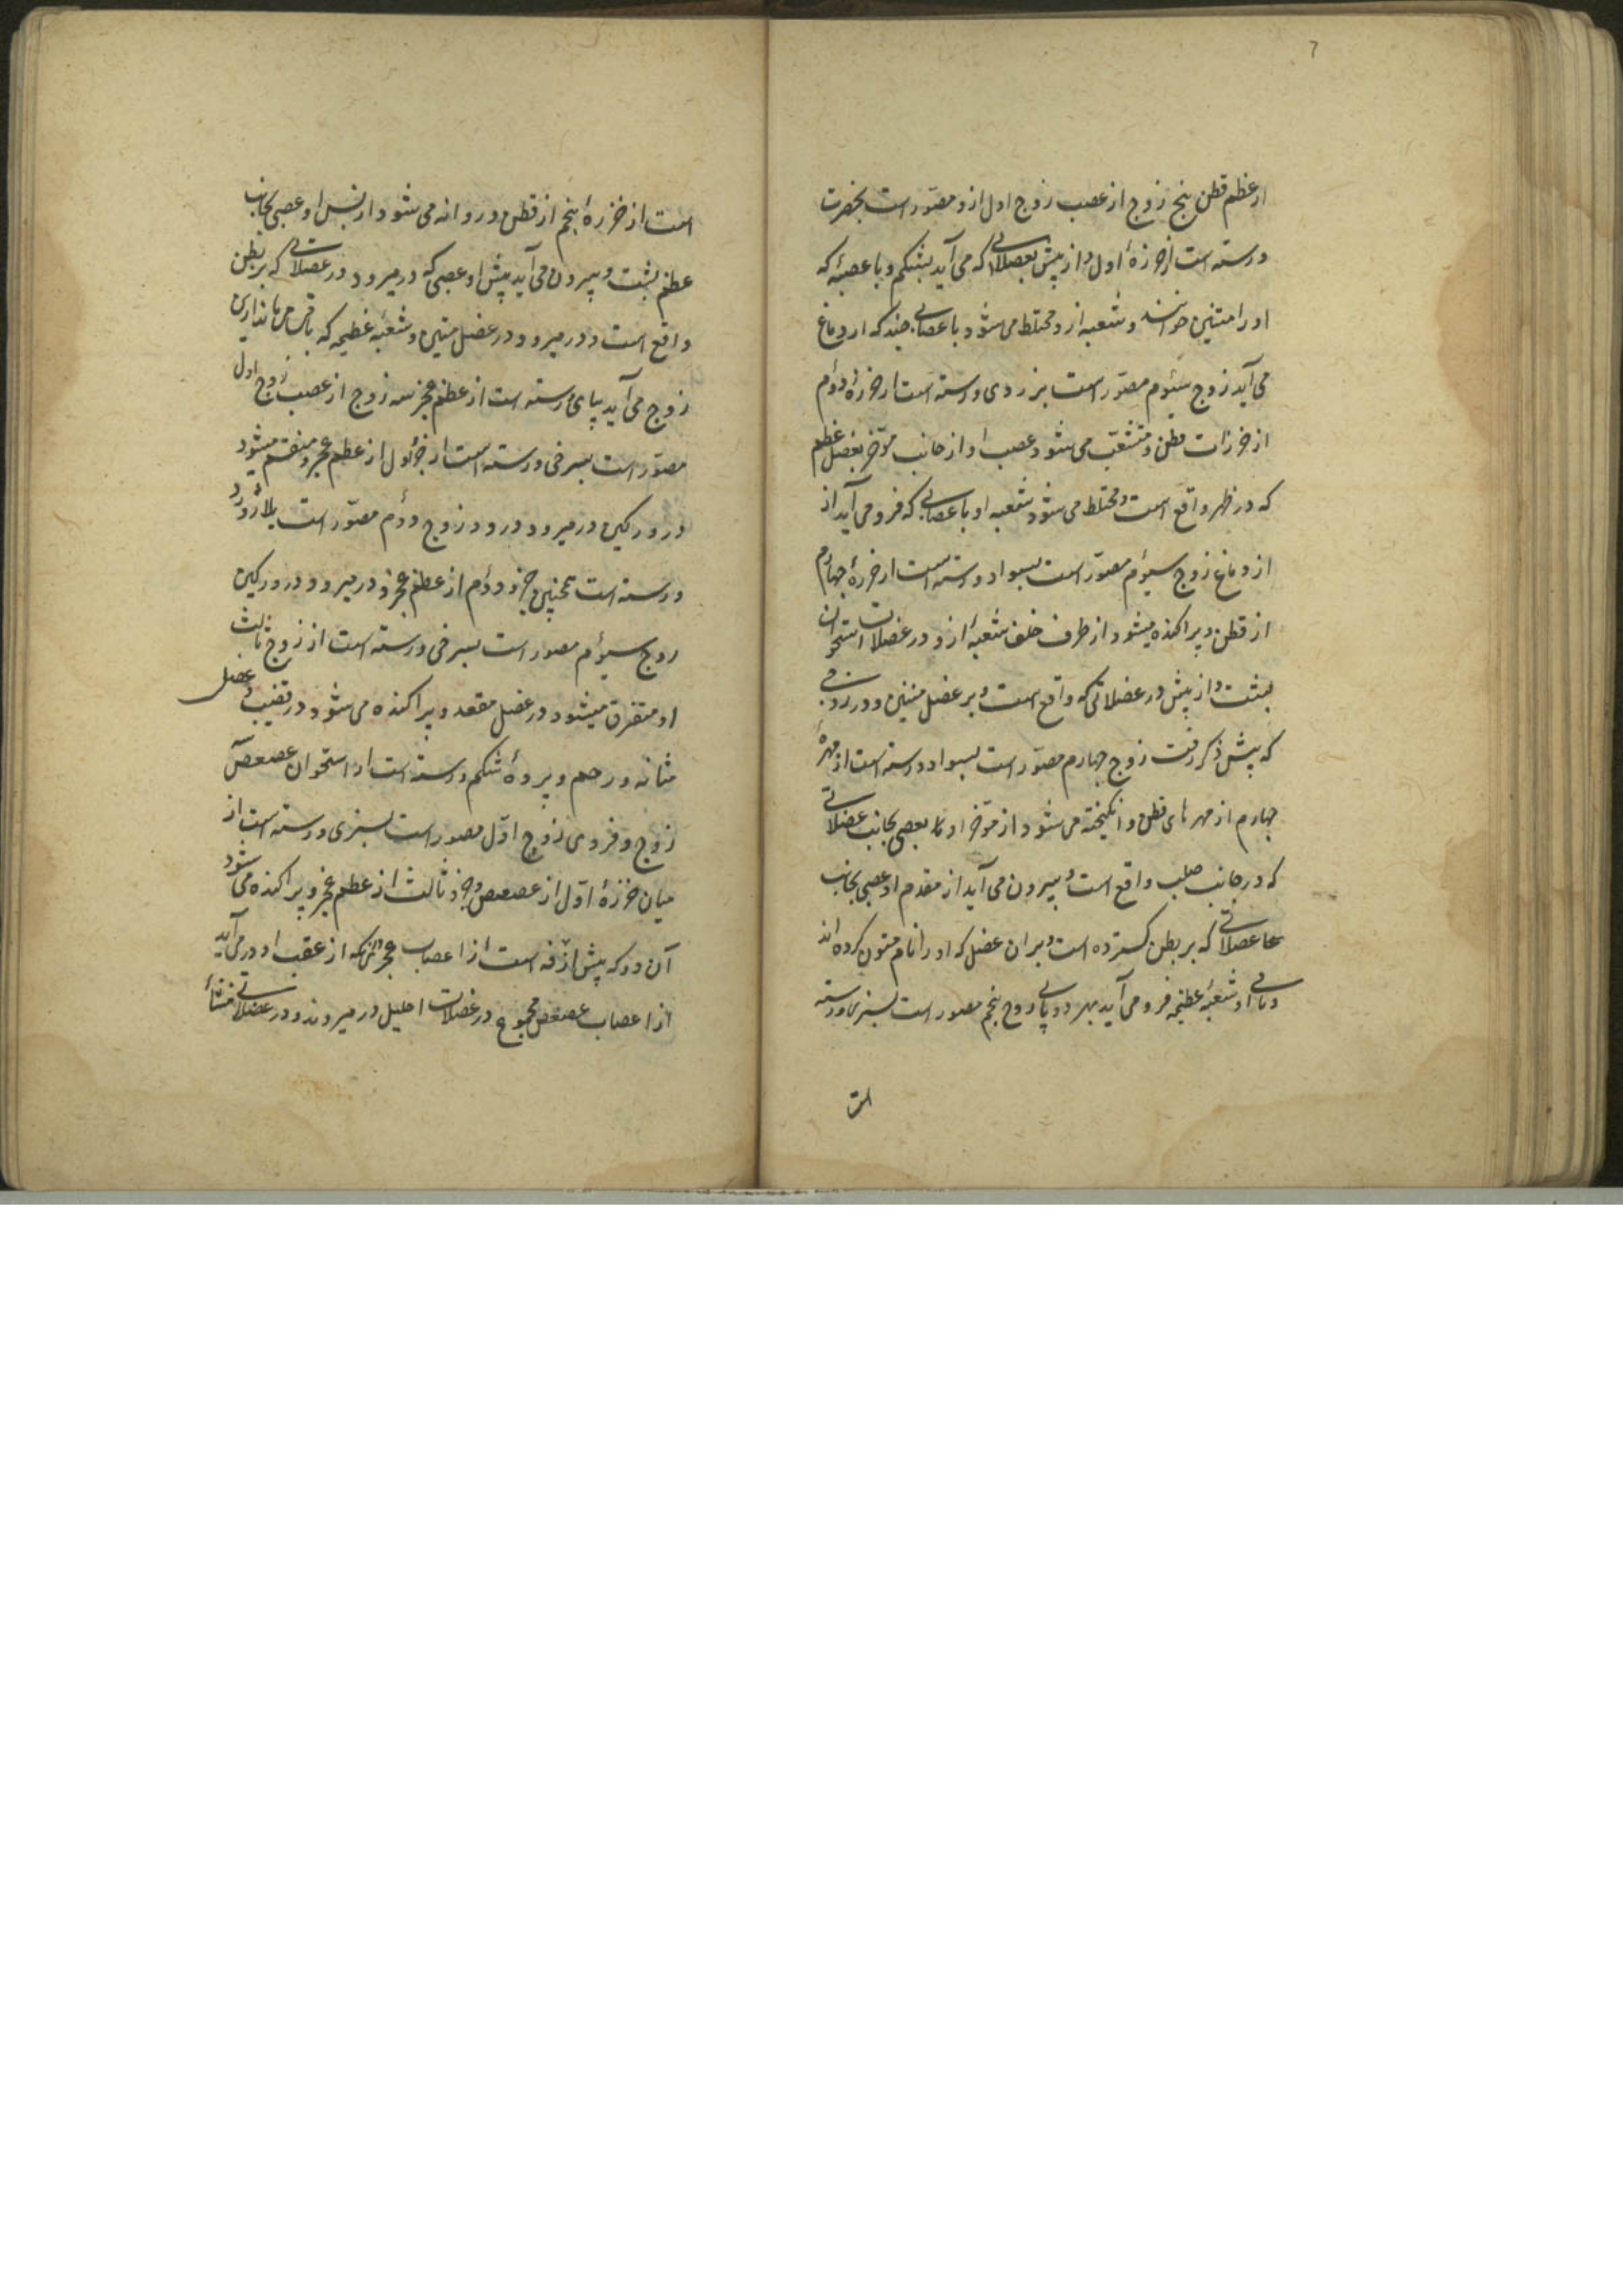 7
از عظم قطن پنج زوج از عصب زوج اول ازو مصوّر است بخضرت
و رسته است از خرزهٔ اول و از پیش بعضلاتی که می آید بشکم و با عصبهٔ که
او را متنین خوانند و شعبه ازو مختلط می شود با عصابی چند که از دماغ
می آید زوج سئوم مصوّر است بزردی و رسته است از خرزهٔ دوٌم
از خرزات قطن و متشعّب می شود عصب او از جانب موٌخر بعضل عظم
که در ظهر واقع است و مختلط می شود شعبه او با عصابی که فرو می آید از
از دماغ زوج سیوٌم مصوّر است بسواد و رسته است از خرزهٔ چهارم
از قطن و پراکنده میشود از طرف خلف شعبهٔ ازو در عضلات استخوان
پشت و از پیش در عضلاتی که واقع است و بر عضل متنین و در
که پیش ذکر رفت زوج چهارم مصوّر است بسواد و رسته است از مهرهٔ
چهارم از مهرهای قطن و انگیخته می شود از موٌخر او بعصبی بجانب عضلاتی
که در جانب صلب واقع است و بیرون می آید از مقدم او عصبی بجانب
عضلاتی که بر بطن گسترده است و بران عضل که او را نام متون کرده اند
و باقی او شعبهٔ عظیمه فرو می آید بهر دو پای زوج پنجم مصور است بسبزی و رسته
است
است از خرزهٔ پنجم از قطن و روانه می شود از پس او عصبی بجانب
عظم پشت و بیرون می آید پیش او عصبی که در میرود در عضلاتی که بر بطن
واقع است و در میرود در عضل متنین و شعبهٔ عظیمه که باقی
زوج می آید بپای و رسته است از عظم عجز سه زوج از عصب زوج اول
مصوّر است بسرخی و رسته است از جزٔ اول از عظم عجز و منقسم میشود
در ورکین در میرود درو و زوج دوٌم مصوّر است بلاژورد
و رسته است همچنین جزو دوٌم از عظم عجز و در میرود در ورکین
زوج سیوٌم مصور است بسرخی و رسته است از زوج ثالث
او متفرق میشود در عضل مقعد و پراکنده می شود در قضیب و عضل
مثانه و رحم و پردهٔ شکم و رسته است از استخوان عصعص سه
زوج و فردی زوج اوّل مصور است بسبزی و رسته است از
میان خرزهٔ اوّل از عصعص و جزو ثالث از عظم عجز و پراکنده می شود
آن دو که پیش ازفه است از اعصاب عجز آنکه از عقب او در می آید
از اعصاب عصعص مجموع در عضلات احلیل در میروند و در عضلاتی منشأ